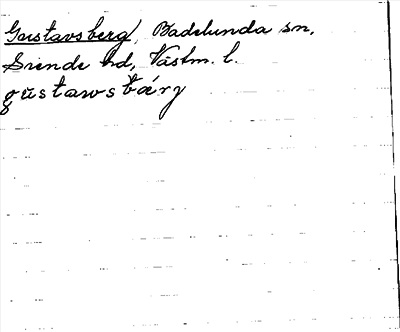 Gustavsberg, Badelunda sn,
Siende hd, Västm. l.
gustawsbárg